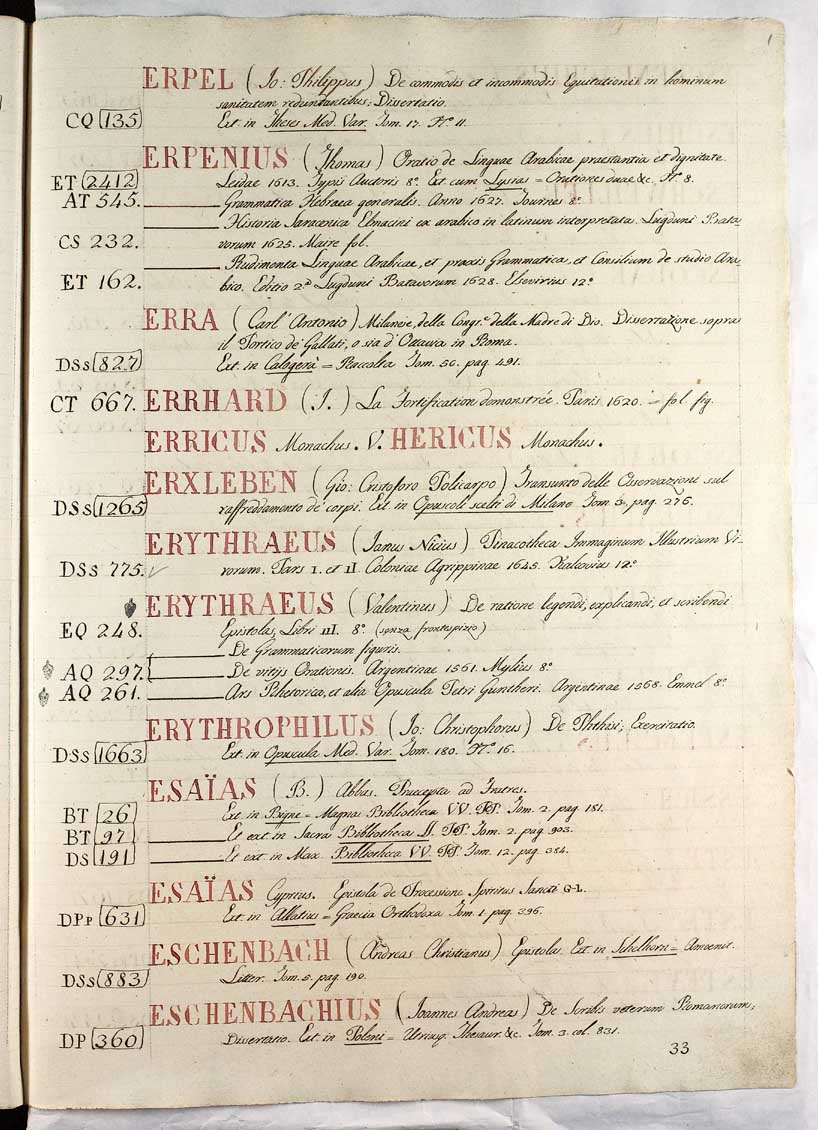 1
ERPEL (Jo: Philippus) De commodis et incommodis Equitationis in hominum
sanitatem redundantibus; Dissertatio.
CQ 135 Ext. in Theses Med. Var. Tom. 17. N.º 11.
ERPENIUS (Thomas) Oratio de Linguae Arabicae praestantia et dignitate.
ET 2412 Leidae 1613. Typis Auctoris 8.º Ext. cum Lysias = Orationes duae &c. N.º 8.
AT 545. Grammatica Hebraea generalis. Anno 1627. Tournes 8.º
Historia Saracenica Elmacini ex arabico in latinum interpretata. Lugduni Bata-
CS 232. vorum 1625. Maire fol.
Rudimenta Linguae Arabicae, et praxis Grammatica, et Consilium de studio Ara-
ET 162. bico. Editio 2.ª Lugduni Batavorum 1628. Elsevirius 12.º
ERRA (Carl' Antonio) Milanese, della Cong.e della Madre di Dio. Dissertazione sopra
il Portico de' Gallati, o sia d' Ottavia in Roma.
DSs 827 Ext. in Calogerà = Raccolta Tom. 50. pag. 491.
CT 667. ERRHARD (I.) La Fortification demonstrée. Paris 1620. = fol. fig.
ERRICUS Monachus. V. HERICUS Monachus.
ERXLEBEN (Gio: Cristoforo Policarpo) Transunto delle Osservazioni sul
DSs 1265 raffreddamento de' corpi. Ext. in Opuscoli scelti di Milano Tom. 3. pag. 276.
ERYTHRAEUS (Janus Nicius) Pinacotheca Immaginum Illustrium Vi-
DSs 775. rorum. Pars I. et II. Coloniae Agrippinae 1645. Kalovius 12.º
ERYTHRAEUS (Valentinus) De ratione legendi, explicandi, et scribendi
EQ 248. Epistolas, Libri III. 8.º (senza frontespizio)
De Grammaticorum figuris.
AQ 297. De vitijs Orationis. Argentinae 1561. Mylius 8.º
AQ 261. Ars Rhetorica, et alia Opuscula Petri Guntheri. Argentinae 1568. Emmel 8.º
ERYTHROPHILUS (Jo: Christophorus) De Phthisi; Exercitatio.
DSs 1663 Ext. in Opuscula Med. Var. Tom. 180. N.º 16.
ESAÏAS (B.) Abbas. Praecepta ad Fratres.
BT 26 Ext. in Bigne = Magna Bibliotheca VV. PP. Tom. 2. pag. 181.
BT 97 Et ext. in Sacra Bibliotheca SS. PP. Tom. 2. pag. 903.
DS 191 Et ext. in Max. Bibliotheca VV. PP. Tom. 12. pag. 384.
ESAÏAS Cyprius. Epistola de Processione Spiritus Sancti G-L.
DPp 631 Ext. in Allatius = Graecia Orthodoxa Tom. 1. pag. 396.
ESCHENBACH (Andreas Christianus) Epistola. Ext. in Schelhorn = Amoenit.
DSs 883 Litter. Tom. 5. pag. 190.
ESCHENBACHIUS (Joannes Andreas) De Scribis veterum Romanorum;
DP 360 Dissertatio. Ext. in Poleni = Utriusq. Thesaur. &c. Tom. 3. col. 831.
33